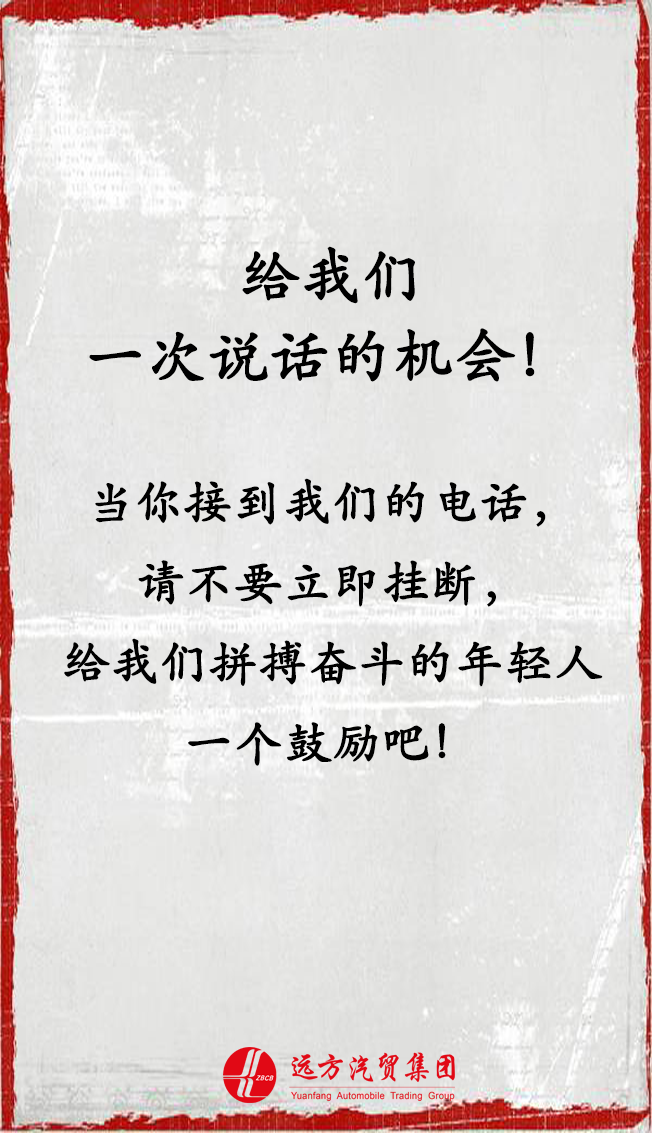 给我们
一次说话的机会！
当你接到我们的电话，
请不要立即挂断，
给我们拼搏奋斗的年轻人
一个鼓励吧！
ZBCB
远方汽贸集团
Yuanfang Automobile Trading Group